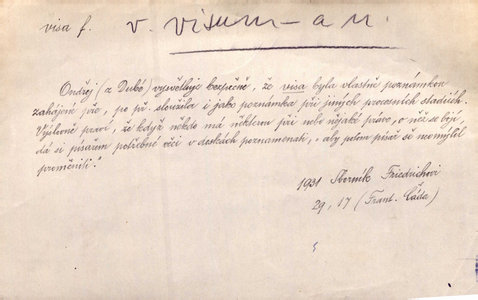 visa f. v. visum - a n.
Ondřej (z Dubé) vysvětluje bezpečně, že visa byla vlastně poznámkou
zahájené pře, po př. sloužila i jako poznámka při jiných procesních stadiích.
Výslovně praví, že když někdo má k některým při nebo nějaké právo, o něž se bojí,
dá si písařem potřebné věci v deskách poznamenati, "aby potom písař se neomýlil
proměniti."
1931 Sborník Friedrichovi
29, 17 (Frant. Čáda)